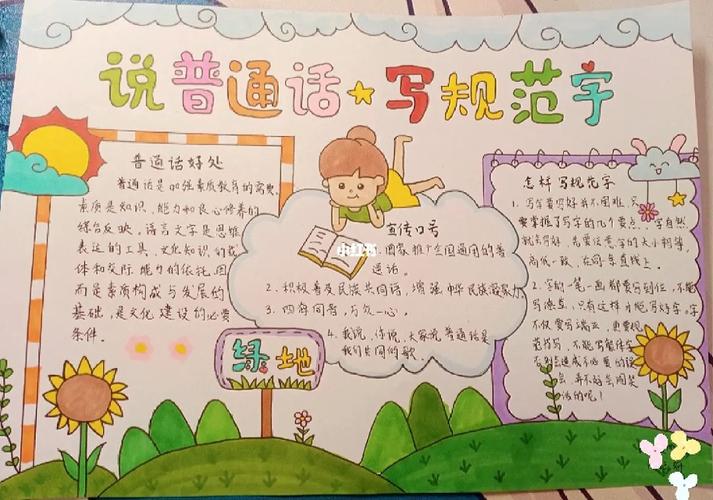 说普通话★写规范字
普通话好处
普通话是加强素质教育的需要,
素质是知识、能力和良心修养的
综合反映、语言文字是思维
表达的工具、文化知识的载
体和交际能力的依托,因
而是素质构成与发展的
基础,是文化建设的必要
条件.
宣传口号
1.国家推广全国通用的普
通话.
2.积极普及民族共同语,增强中华民族凝聚力.
3.四海同音,万众一心.
4.我说、你说、大家说普通话是
我们共同的歌.
小红书
绿地
怎样写规范字
1.写字要写好并不困难,只
要掌握了写字的几个要点,字自然
就会写好,需要注意字的大小相等,
高低一致,在同条直线上.
2.字的一笔一画都要写到位,不能
写潦草.只有这样才能写好字,字
不仅要写端正,更要规
范书写,不能写繁体字,
否则会造成不必要的误
会,弄不好会闹笑
话的呢!